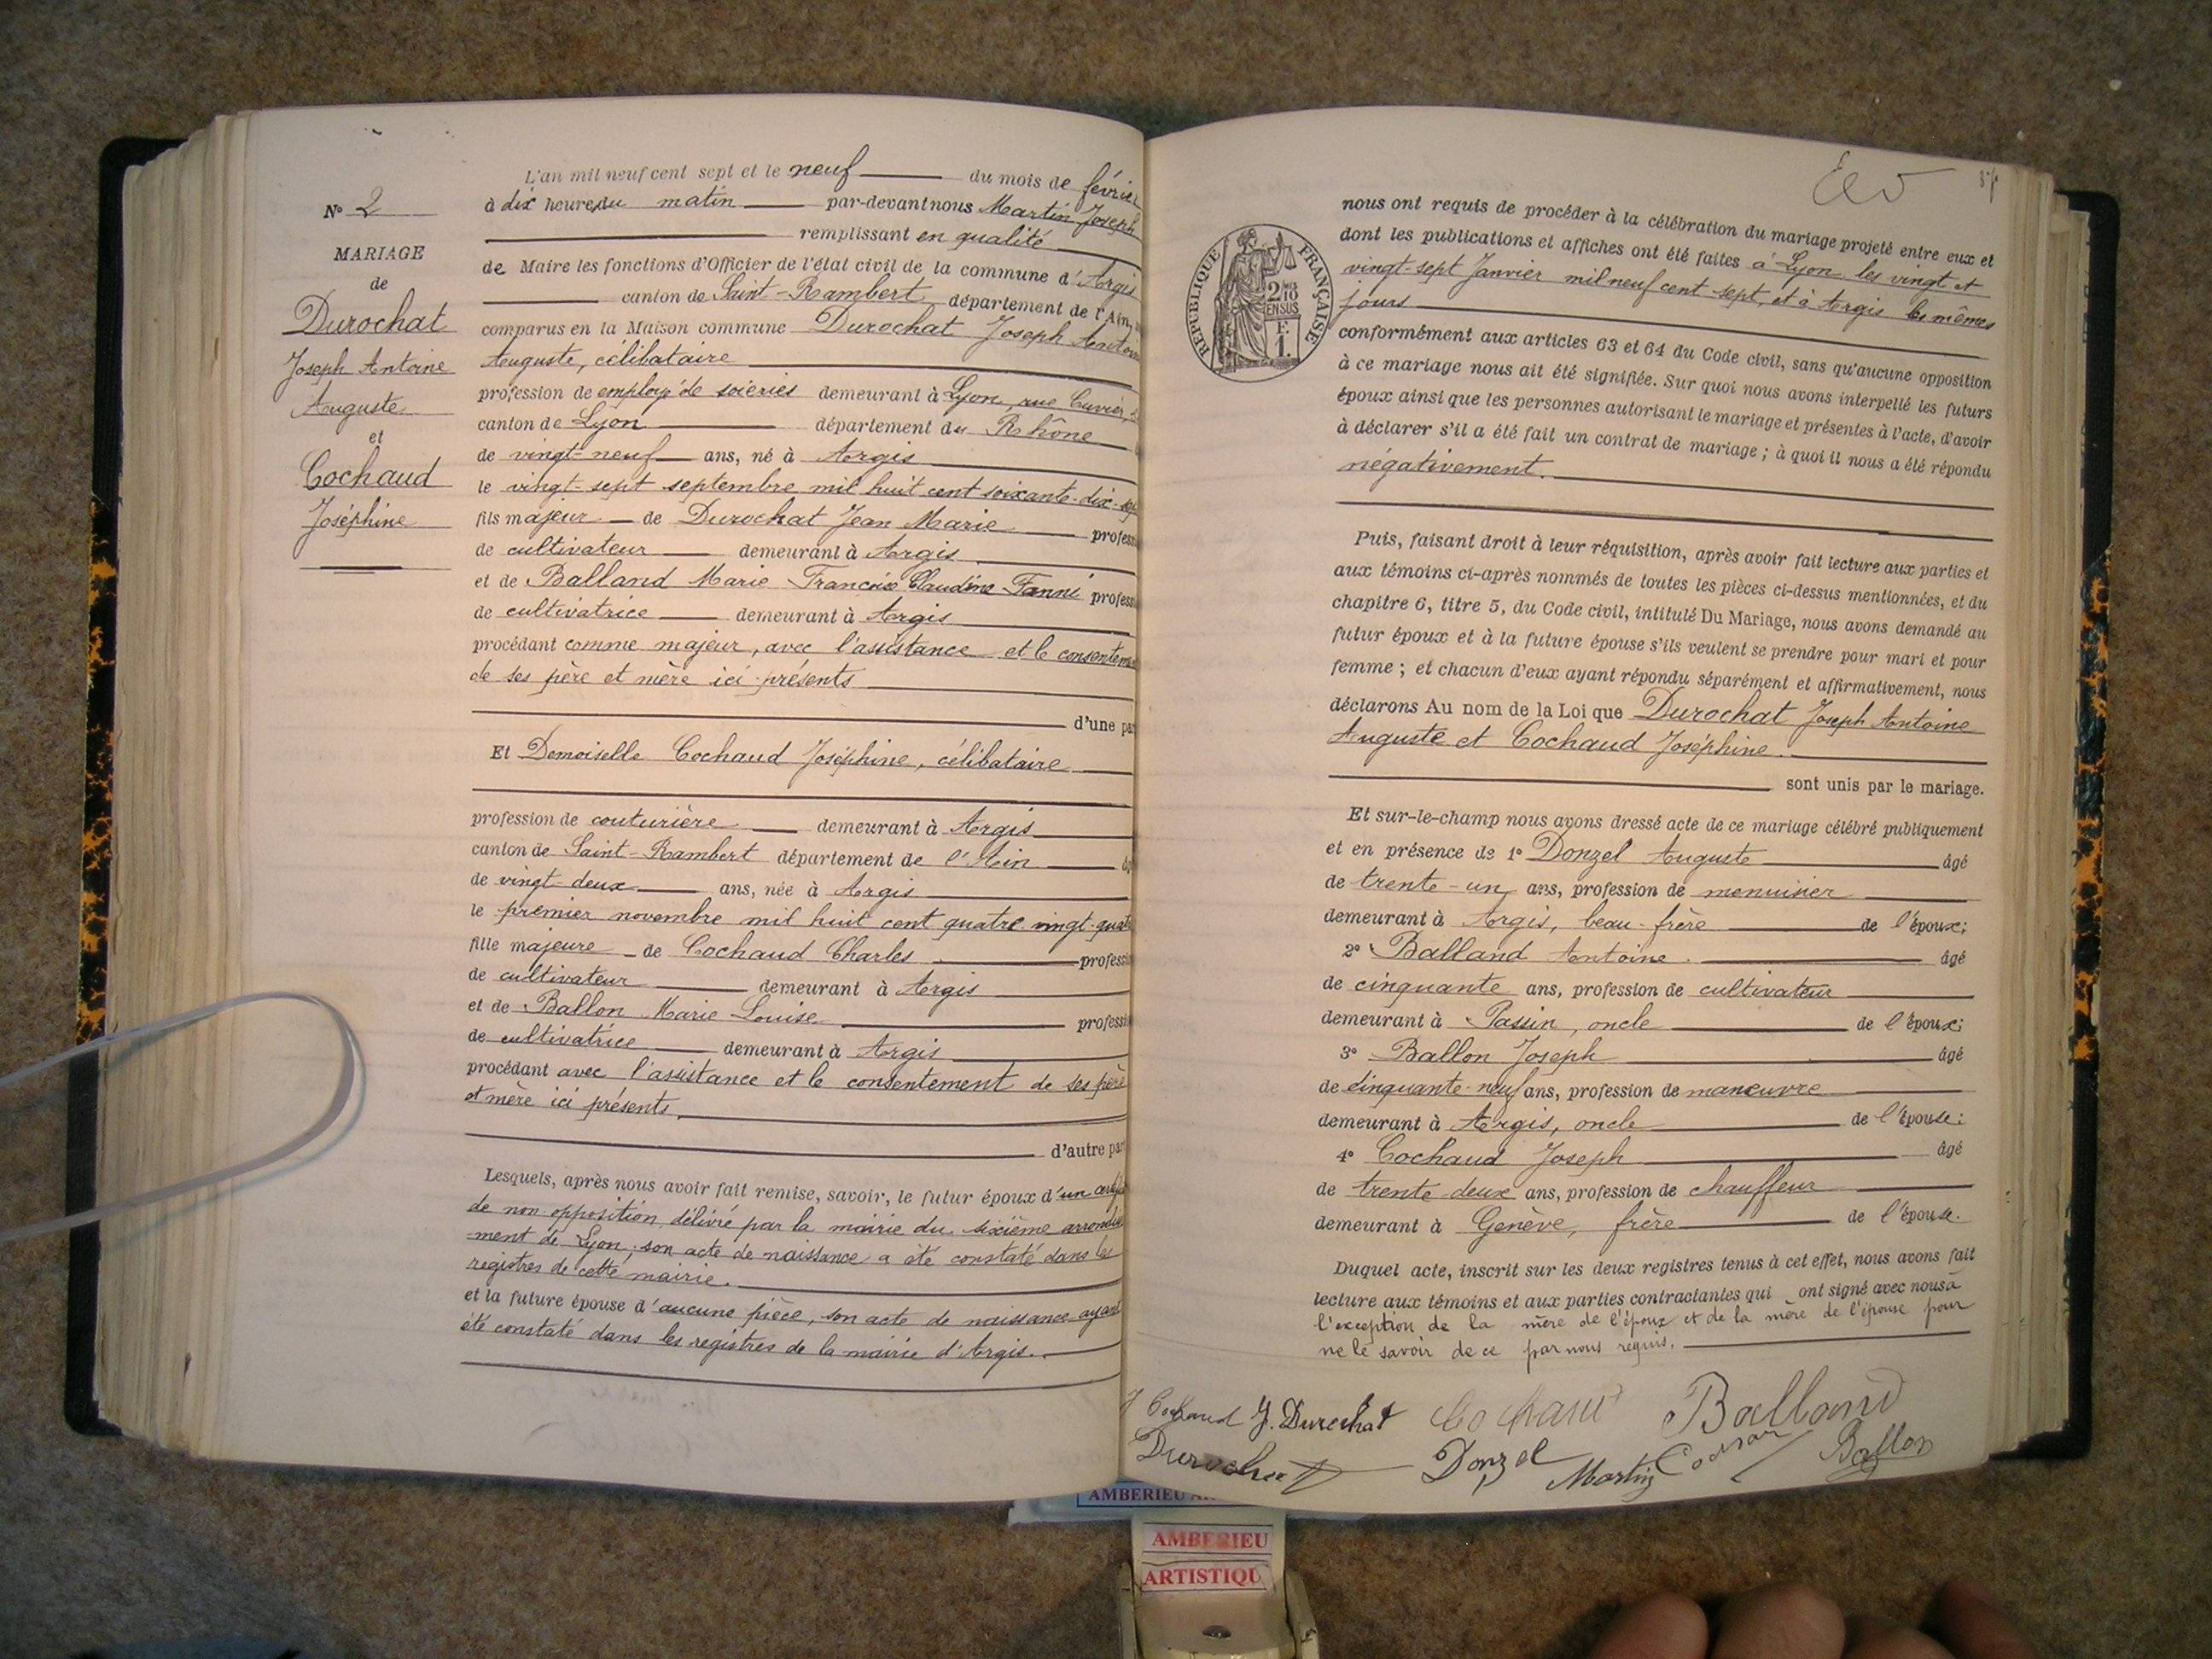 N° 2
MARIAGE
de
Durochat
Joseph Antoine
Auguste
et
Cochaud
Joséphine
L'an mil neuf cent sept et le neuf du mois de février
à dix heures du matin par-devant nous Martin Joseph
remplissant en qualité
de Maire les fonctions d'Officier de l'état civil de la commune d'Argis
canton de Saint-Rambert département de l'Ain,
comparus en la Maison commune Durochat Joseph Antoine
Auguste, célibataire
profession de employé de soieries demeurant à Lyon, rue Cuvier,
canton de Lyon département du Rhône
de vingt-neuf ans, né à Argis
le vingt-sept septembre mil huit cent soixante-dix-sep
fils majeur de Durochat Jean Marie profess
de cultivateur demeurant à Argis
et de Balland Marie Claudine Fanni profess
de cultivatrice demeurant à Argis
procédant comme majeur, avec l'assistance et le consentem
de ses père et mère ici présents
d'une par
Et Demoiselle Cochaud Joséphine, célibataire
profession de couturière demeurant à Argis
canton de Saint-Rambert département de l'Ain
de vingt-deux ans, née à Argis
le premier novembre mil huit cent quatre vingt-quat
fille majeure de Cochaud Charles profess
de cultivateur demeurant à Argis
et de Ballon Marie Louise profess
de cultivatrice demeurant à Argis
procédant avec l'assistance et le consentement de ses père
et mère ici présents,
d'autre par
Lesquels, après nous avoir fait remise, savoir, le futur époux d'un
de non opposition délivré par la mairie du sixième arrondisse
-ment de Lyon; son acte de naissance a été constaté dans les
registres de cette mairie.
et la future épouse d'aucune pièce, son acte de naissance ayant
été constaté dans les registres de la mairie d'Argis.
RÉPUBLIQUE FRANÇAISE
nous ont requis de procéder à la célébration du mariage projeté entre eux et
dont les publications et affiches ont été faites à Lyon les vingt et
vingt-sept Janvier mil neuf cent sept, et à Argis les mêmes
jours
conformément aux articles 63 et 64 du Code civil, sans qu'aucune opposition
à ce mariage nous ait été signifiée. Sur quoi nous avons interpellé les futurs
époux ainsi que les personnes autorisant le mariage et présentes à l'acte, d'avoir
à déclarer s'il a été fait un contrat de mariage; à quoi il nous a été répondu
négativement.
Puis, faisant droit à leur réquisition, après avoir fait lecture aux parties et
aux témoins ci-après nommés de toutes les pièces ci-dessus mentionnées, et du
chapitre 6, titre 5, du Code civil, intitulé Du Mariage, nous avons demandé au
futur époux et à la future épouse s'ils veulent se prendre pour mari et pour
femme; et chacun d'eux ayant répondu séparément et affirmativement, nous
déclarons Au nom de la Loi que Durochat Joseph Antoine
Auguste et Cochaud Joséphine.
sont unis par le mariage.
Et sur-le-champ nous avons dressé acte de ce mariage célébré publiquement
et en présence de 1° Donzel Auguste âgé
de trente-un ans, profession de menuisier
demeurant à Argis, beau-frère de l'époux;
2° Balland Antoine. âgé
de cinquante ans, profession de cultivateur
demeurant à Passin, oncle de l'époux;
3° Ballon Joseph âgé
de cinquante-neuf ans, profession de manœuvre
demeurant à Argis, oncle de l'épouse;
4° Cochaud Joseph âgé
de trente deux ans, profession de chauffeur
demeurant à Genève, frère de l'épouse.
Duquel acte, inscrit sur les deux registres tenus à cet effet, nous avons fait
lecture aux témoins et aux parties contractantes qui ont signé avec nous à
l'exception de la mère de l'époux et de la mère de l'épouse pour
ne le savoir de ce par nous requis.
J Cochaud J. Durochat Cochaud Balland
Durochat Donzel Martin Cochaud Ballon
AMBERIEU
AMBERIEU
ARTISTIQU